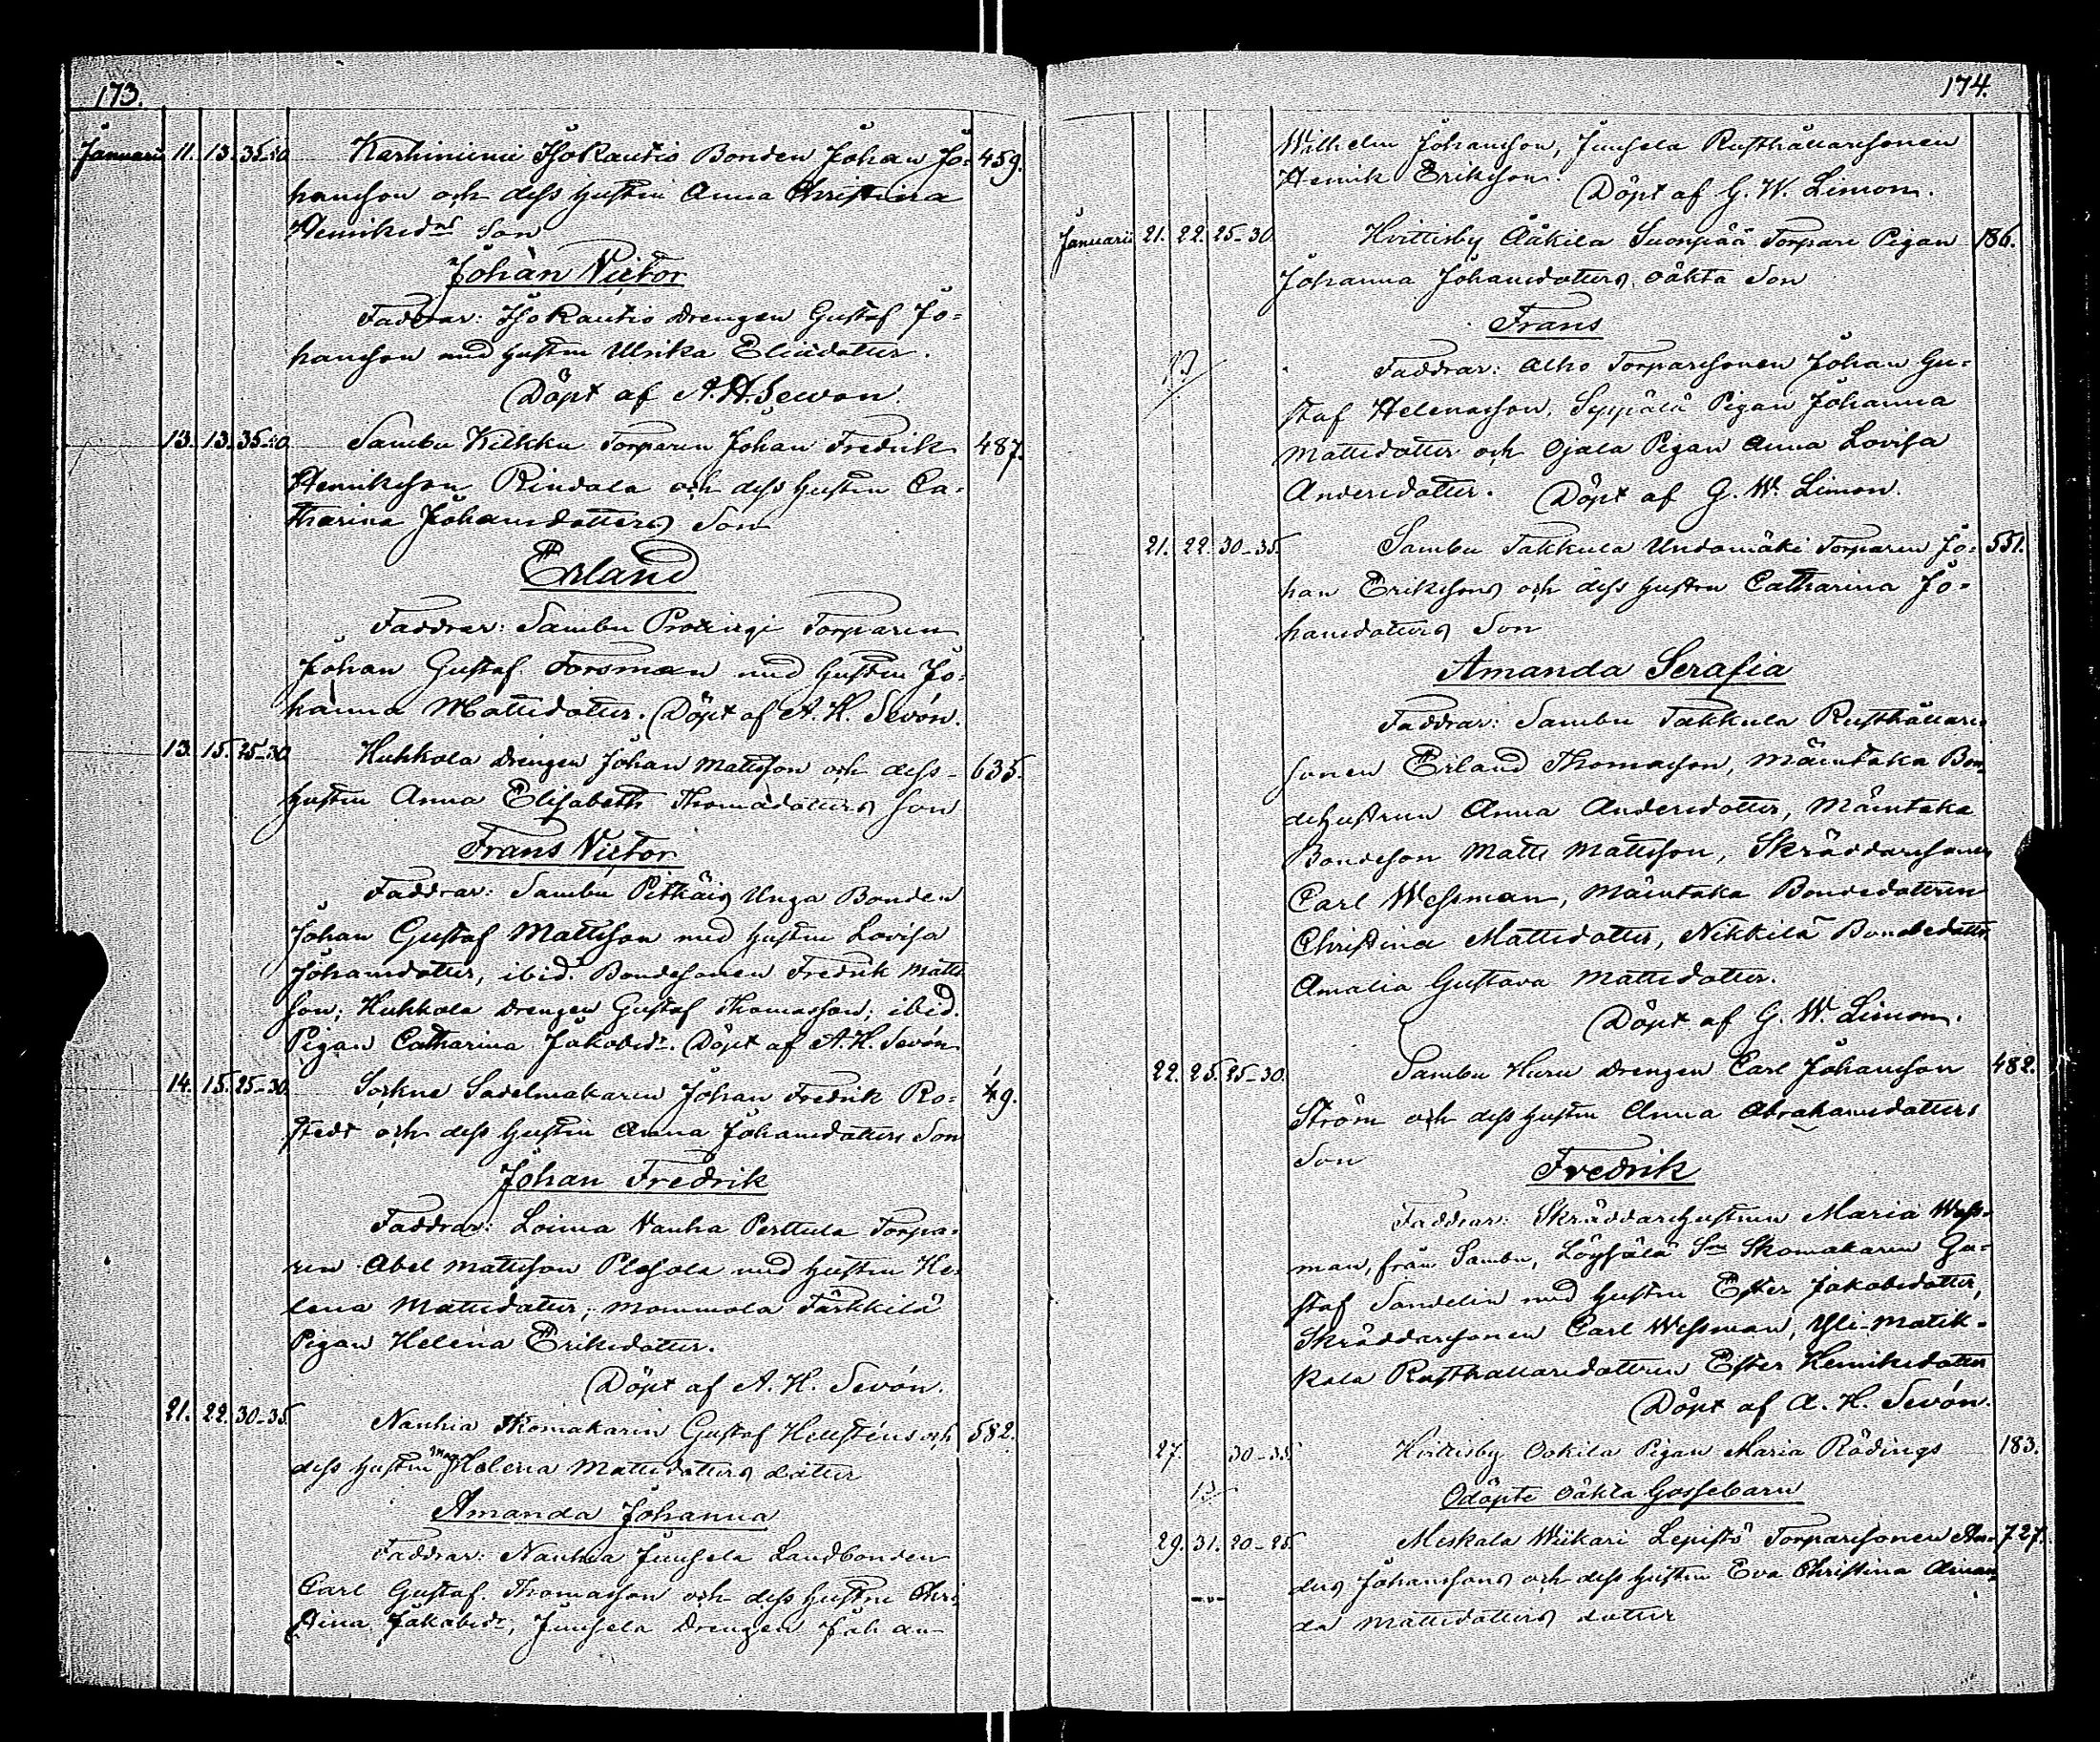 173.
Januarii 11. 13. 35-40 Karhiniemi Isokautio Bonden Johan Jo= 459.
hansson och dess hustru Anna Christina
Henriksdrs Son
Johan Victor
Faddrar: Isokautio drengen Gustaf Jo=
hansson med hustru Ulrika Eliædotter.
Döpt af A. H. Sewon.
13. 13. 35-40 Sambu Kilkku Torparen Johan Fredrik 487.
Henriksson Rindala och dess hustru Ca=
tharina Johansdotters Son
Erland
Faddrar: Sambu Torparen
Johan Gustaf Forsman med hustru Jo=
hanna Mattsdotter. Döpt af A. H. Sevón.
13. 15. 25-30 Huhkola drengen Johan Mattsson och dess 635.
hustru Anna Elisabeth Thomædotters Son
Frans Victor
Faddrar: Sambu Pitkäis Unga Bonden
Johan Gustaf Mattsson med hustru Lovisa
Johansdotter, ibid. Bondesonen Fredrik Matts
son, Huhkola drengen Gustaf Thomasson, ibid.
Pigan Catharina Jakobsdr. Döpt af A. H. Sevón
14. 15. 25-30. Sorkne Sadelmakaren Johan Fredrik Ro= 49.
stedt och dess hustru Anna Johansdotters Son
Johan Fredrik
Faddrar: Loima Vanha Perttula Torpa=
ren Abel Mattsson med hustru He=
lena Mattsdotter, Mommola Färkkilä
Pigan Helena Eriksdotter.
Döpt af A. H. Sevón.
21. 22. 30-35. Nanhia Skomakaren Gustaf Hellsténs och 582.
dess hustru Helena Mattsdotters dotter
Amanda Johanna
Faddrar: Nanhia Junsela Landbonden
Carl Gustaf Thomasson och dess hustru Chri
stina Jakobsdr, Junsela Drengen Johan
174.
Wilhelm Johansson, Junsela Rusthållarsonen
Henrik Eriksson. Döpt af G. W. Limon.
Januarii 21. 22. 25-30 Hvittisby Ääkila Suonpää Torpare Pigan 186.
Johanna Johansdotters oäkta Son
Frans
Faddrar: Alho Torparesonen Johan Gu=
staf Helenasson, Seppälä Pigan Johanna
Mattsdotter och Ojala Pigan Anna Lovisa
Andersdotter. Döpt af G. W. Limon.
21. 22. 30-35. Sambu Takkula Undamäki Torparen Jo= 551.
han Erikssons och dess hustru Catharina Jo=
hansdotters Son
Amanda Serafia
Faddrar: Sambu Takkula Rusthållare
sonen Erland Thomasson, Mäentaka Bon=
dehustrun Anna Andersdotter, Mäentaka
Bondeson Matts Mattsson, Skräddaresonen
Carl Wessman, Mäentaka Bondedottren
Christina Mattsdotter, Nikkilä Bondedotter
Amalia Gustava Mattsdotter.
Döpt af G. W. Limon.
22. 25. 25-30. Sambu Huru drengen Carl Johansson 482.
Ström och dess hustru Anna Abrahamsdotters
Son
Fredrik
Faddrar: Skräddarehustrun Maria Wess=
man, från Sambu, Löysälä Skomakaren Gu=
staf Sandelin med hustru Ester Jakobsdotter,
Skräddaresonen Carl Wessman, Yli-Matik=
kala Rusthållaredottren Ester Henriksdotter
Döpt af A. H. Sevón.
27. 30-35. Hvittisby Ookila Pigan Maria Rödings 183.
Odöpte oäkta Gossebarn
29. 31. 20-25. Meskala Wiikari Lepistö Torparesonen An= 727.
ders Johanssons och dess hustru Eva Christina Aman=
da Mattsdotters dotter